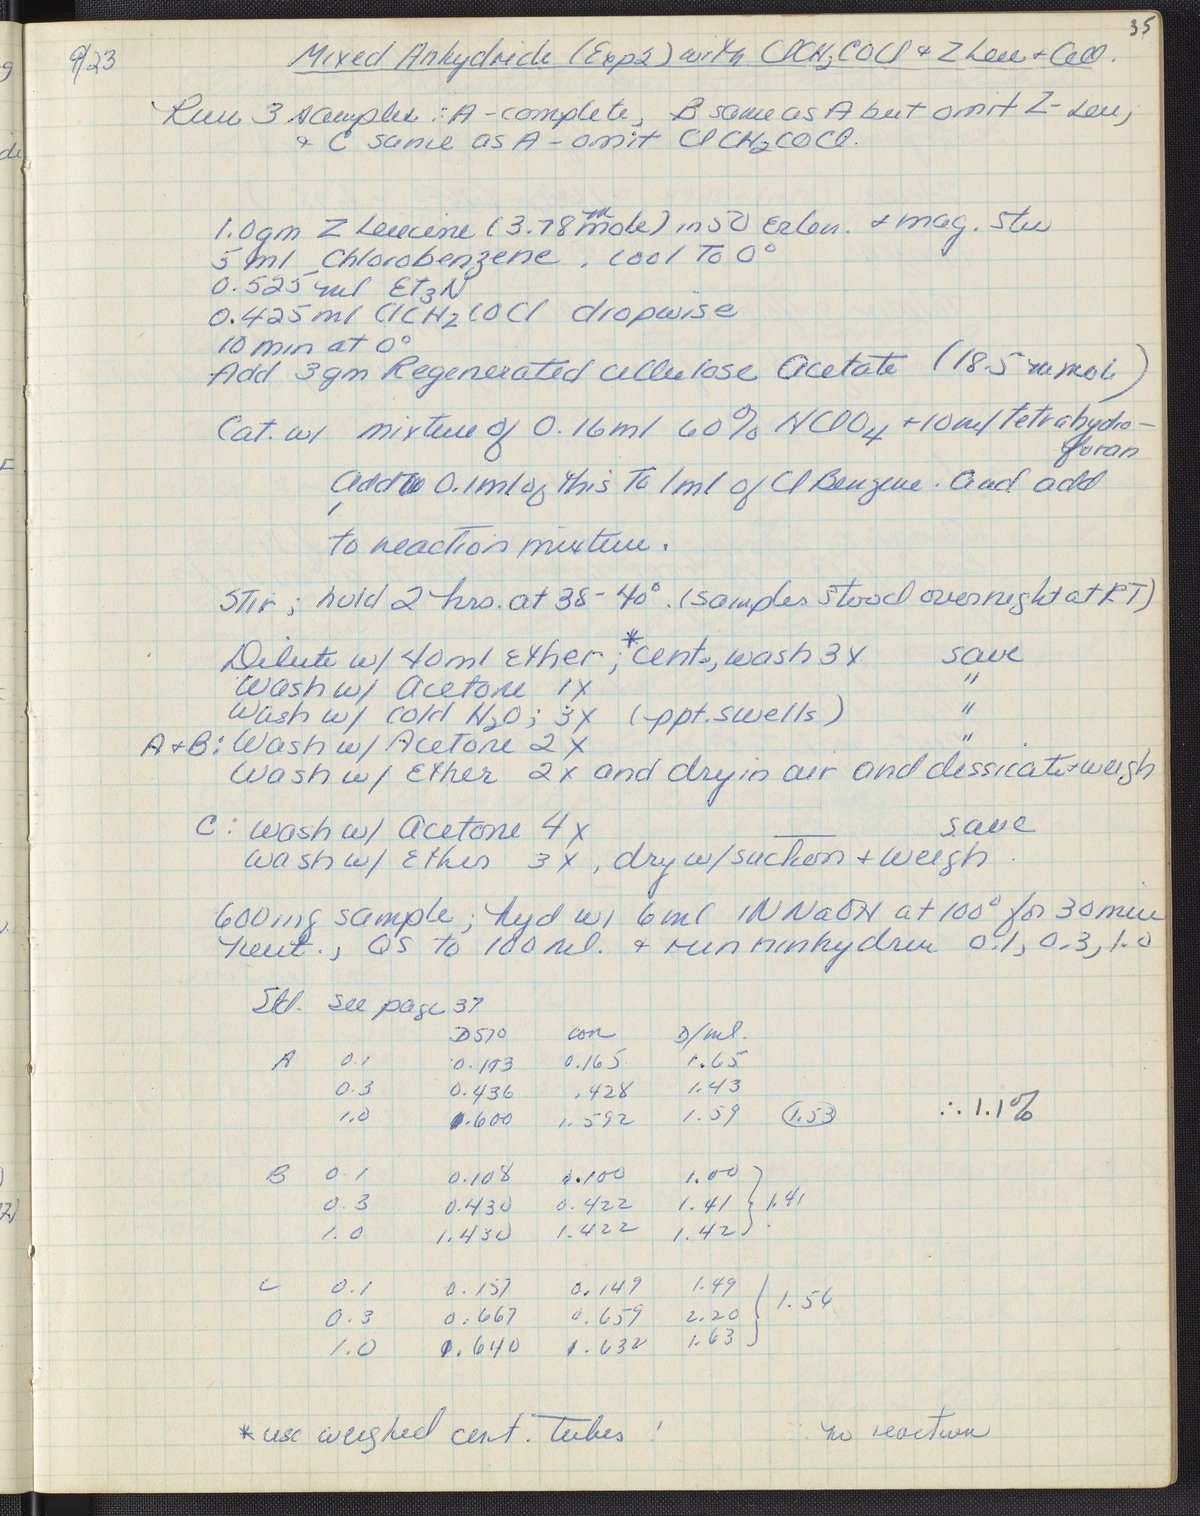 35
9/23 Mixed Anhydride (Exp 2) with ClCH2COCl + Z Leu + Cell.
Run 3 samples: A - complete, B same as A but omit Z-Leu,
+ C same as A - omit ClCH2COCl.
1.0 gm Z Leucine (3.78 mmole) in 50 Erlen. + mag. stir
5 ml Chlorobenzene, cool to 0°
0.525 ml Et3N
0.425 ml ClCH2COCl dropwise
10 min at 0°
Add 3 gm Regenerated cellulose Acetate (18.5 mmole)
Cat. w/ mixture of 0.16 ml 60% HClO4 + 10 ml tetrahydro-
furan
Add 0.1 ml of this to 1 ml of Cl Benzene. and add
to reaction mixture.
Stir; hold 2 hrs. at 38-40°. (samples stood overnight at RT)
Dilute w/ 40 ml Ether; *cent., wash 3x save
Wash w/ Acetone 1x "
Wash w/ cold H2O; 3x (-ppt. swells) "
A+B: Wash w/ Acetone 2x "
Wash w/ Ether 2x and dry in air and dessicate + weigh
C: wash w/ Acetone 4x — save
wash w/ Ether 3x, dry w/ suction + weigh.
600 mg sample; hyd w/ 6 ml 1N NaOH at 100° for 30 min
Neut., QS to 100 ml. + run ninhydrin 0.1, 0.3, 1.0
Std. see page 37
D570 corr D/ml.
A 0.1 0.173 0.165 1.65
0.3 0.436 .428 1.43
1.0 1.600 1.592 1.59 1.53 ∴ 1.1%
B 0.1 0.108 0.100 1.00
0.3 0.430 0.422 1.41 1.41
1.0 1.430 1.422 1.42
C 0.1 0.157 0.149 1.49
0.3 0.667 0.659 2.20 1.56
1.0 1.640 1.632 1.63
*use weighed cent. tubes! no reaction